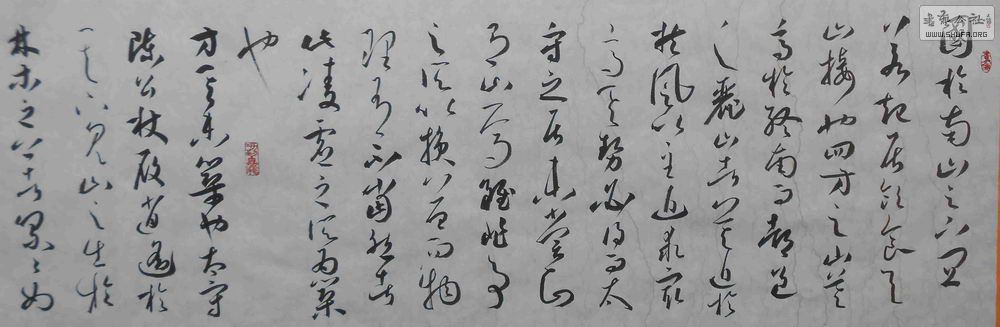 書法公社
WWW.SHUFA.ORG
國於南山之下宜
若起居飲食與
山接也四方之山莫
高於終南而都邑
之麗山者莫近於
扶風以至近求最
高其勢必得而太
守之居未嘗知
有山焉雖非事
之所以損益而物
理有不當然者
此凌虛之所為築
也
方其未築也太守
陳公杖屨逍遙於
其下見山之出於
林木之上者累累如